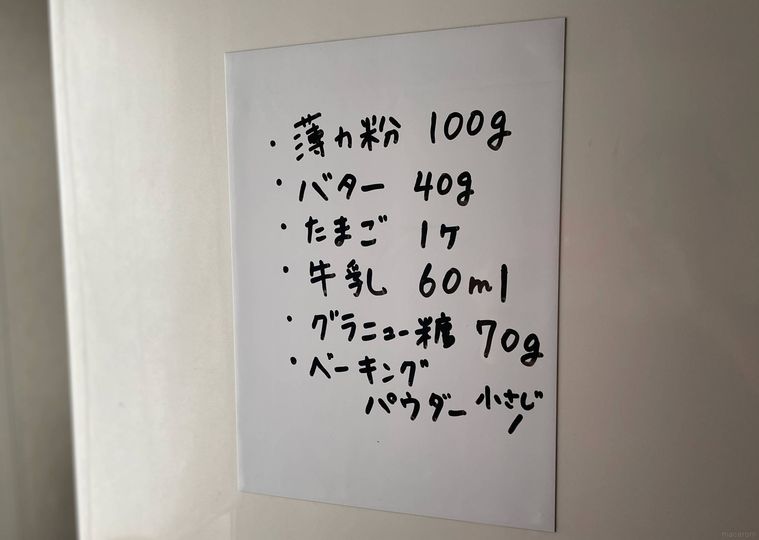 ・薄力粉 100g
・バター 40g
・たまご 1ケ
・牛乳 60ml
・グラニュー糖 70g
・ベーキング
パウダー 小さじ
1
macaroni